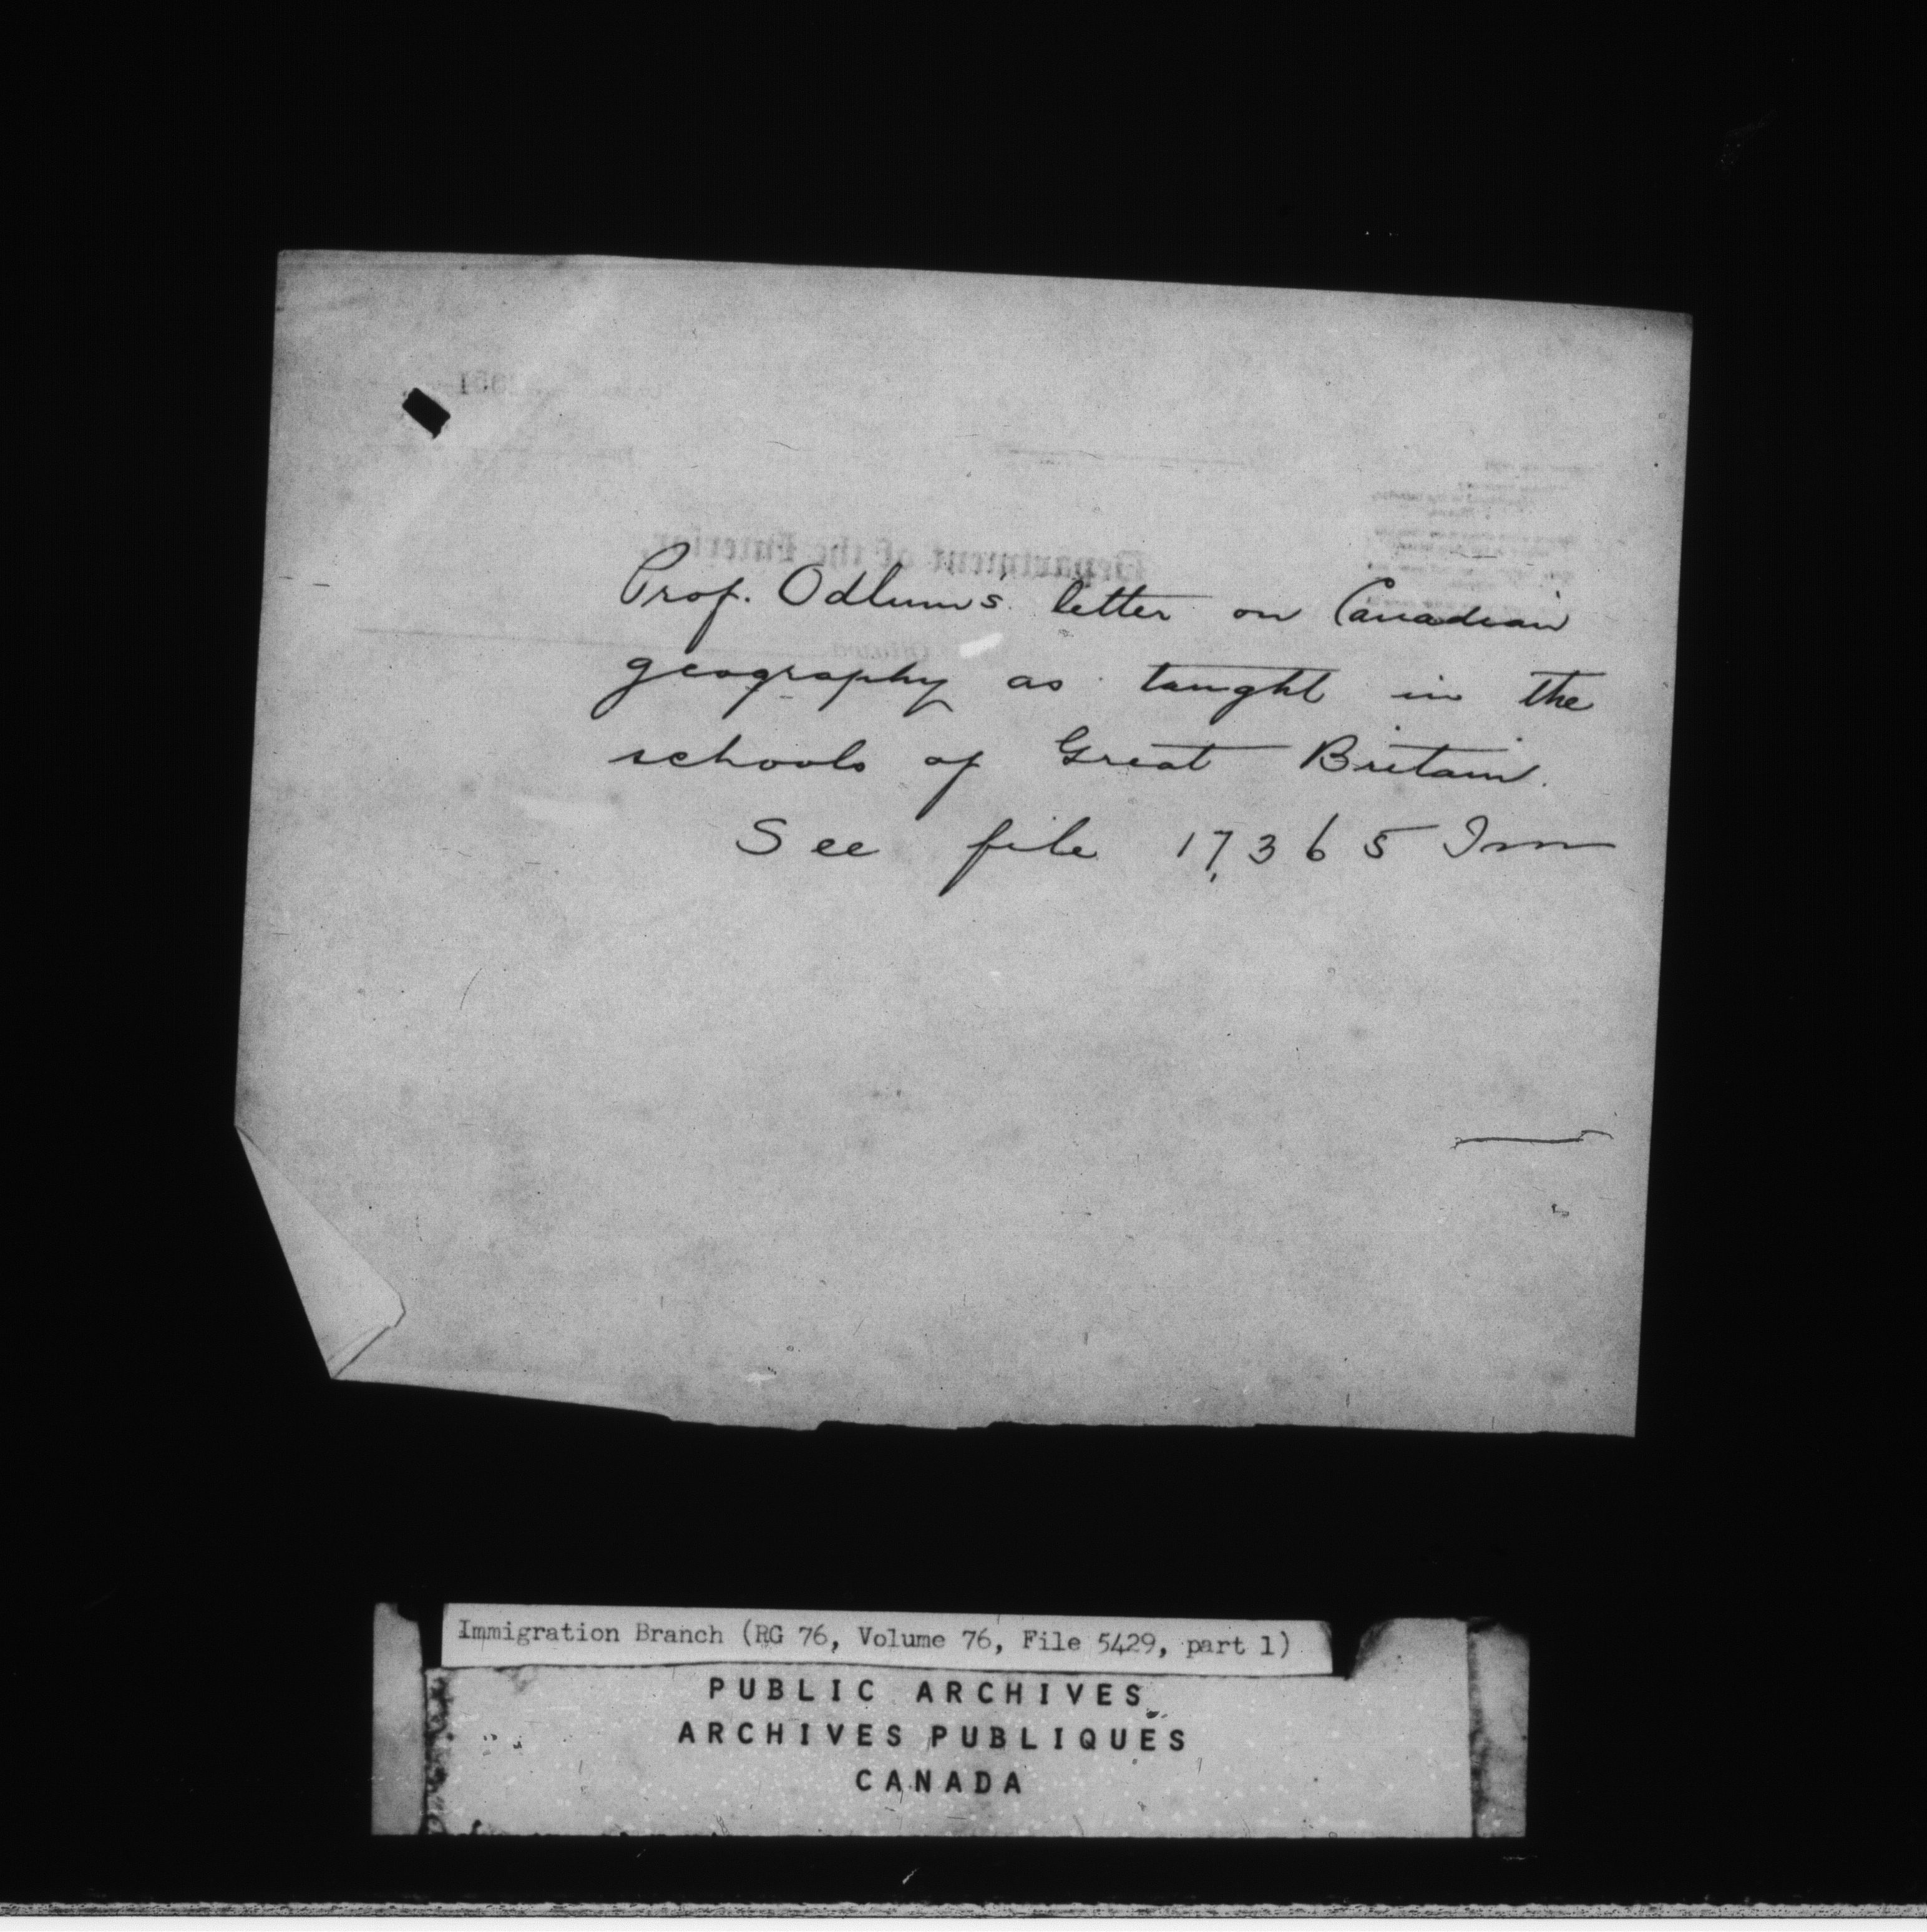 Department of the Interior.
Ottawa
Prof. Odlum's letter on Canadian
geography as taught in the
schools of Great Britain.
See file 17,365 Imm
Immigration Branch (RG 76, Volume 76, File 5429, part 1)
PUBLIC ARCHIVES
ARCHIVES PUBLIQUES
CANADA